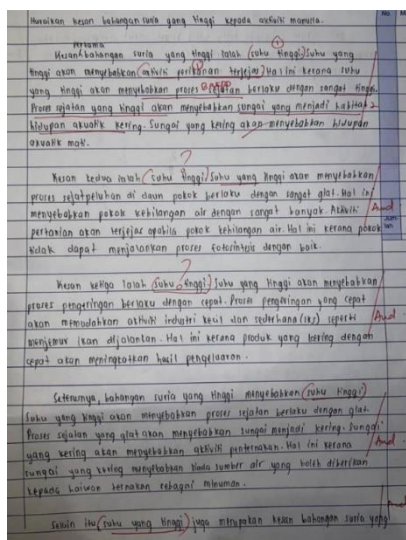 Huraikan kesan bahangan suria yang tinggi kepada aktiviti manusia.
Pertama
Kesan bahangan suria yang tinggi ialah (suhu tinggi) Suhu yang
tinggi akan menyebabkan (aktiviti perikanan terjejas) Hal ini kerana suhu
yang tinggi akan menyebabkan proses sejatan berlaku dengan sangat tinggi.
Proses sejatan yang tinggi akan menyebabkan sungai yang menjadi habitat 2
hidupan akuatik kering. Sungai yang kering akan menyebabkan hidupan
akuatik mati.
?
Kesan kedua ialah (suhu tinggi) Suhu yang tinggi akan menyebabkan
proses sejatpeluhan di daun pokok berlaku dengan sangat giat. Hal ini
menyebabkan pokok kehilangan air dengan sangat banyak. Aktiviti
pertanian akan terjejas apabila pokok kehilangan air. Hal ini kerana pokok
tidak dapat menjalankan proses fotosintesis dengan baik.
?
Kesan ketiga ialah (suhu tinggi) Suhu yang tinggi akan menyebabkan
proses pengeringan berlaku dengan cepat. Proses pengeringan yang cepat
akan memudahkan aktiviti industri kecil dan sederhana (IKS) seperti
menjemur ikan dijalankan. Hal ini kerana produk yang kering dengan
cepat akan meningkatkan hasil pengeluaran.
Seterusnya, bahangan suria yang tinggi menyebabkan (suhu tinggi)
Suhu yang tinggi akan menyebabkan proses sejatan berlaku dengan giat.
Proses sejatan yang giat akan menyebabkan sungai menjadi kering. Sungai
yang kering akan menyebabkan aktiviti penternakan. Hal ini kerana
sungai yang kering menyebabkan tiada sumber air yang boleh diberikan
kepada haiwan ternakan sebagai minuman.
Selain itu (suhu yang tinggi) juga merupakan kesan bahangan suria yang